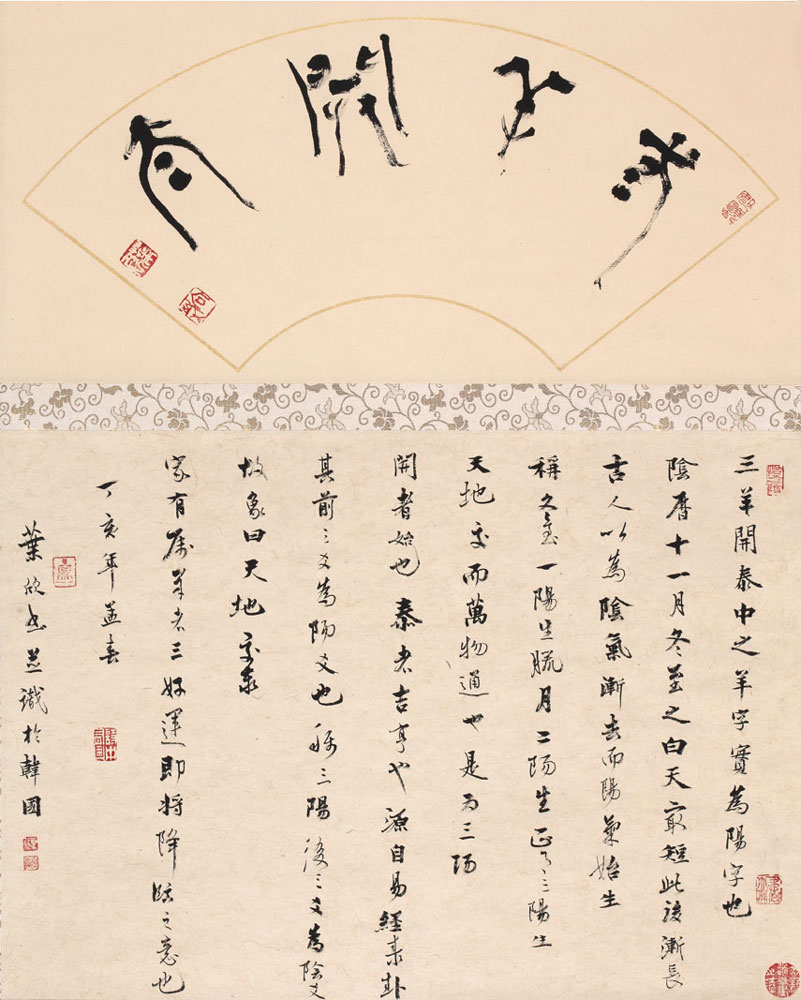 羊開泰
三羊開泰中之羊字實為陽字也
陰曆十一月冬至之白天最短此後漸長
古人以為陰氣漸去而陽氣始生
稱冬至一陽生臘月二陽生正月三陽生
天地交而萬物通也是為三陽
開者始也泰者吉亨也源自易經泰卦
其前三爻為陽爻也稱三陽後三爻為陰爻
故象曰天地交泰
家有屬羊者三好運即將降臨之意也
丁亥年孟春
葉欣書並識於韓國